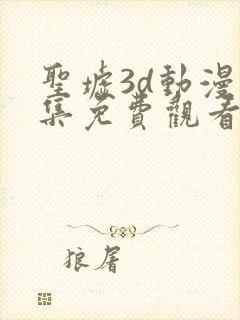 聖墟3d動漫
集免費觀看
狼屠